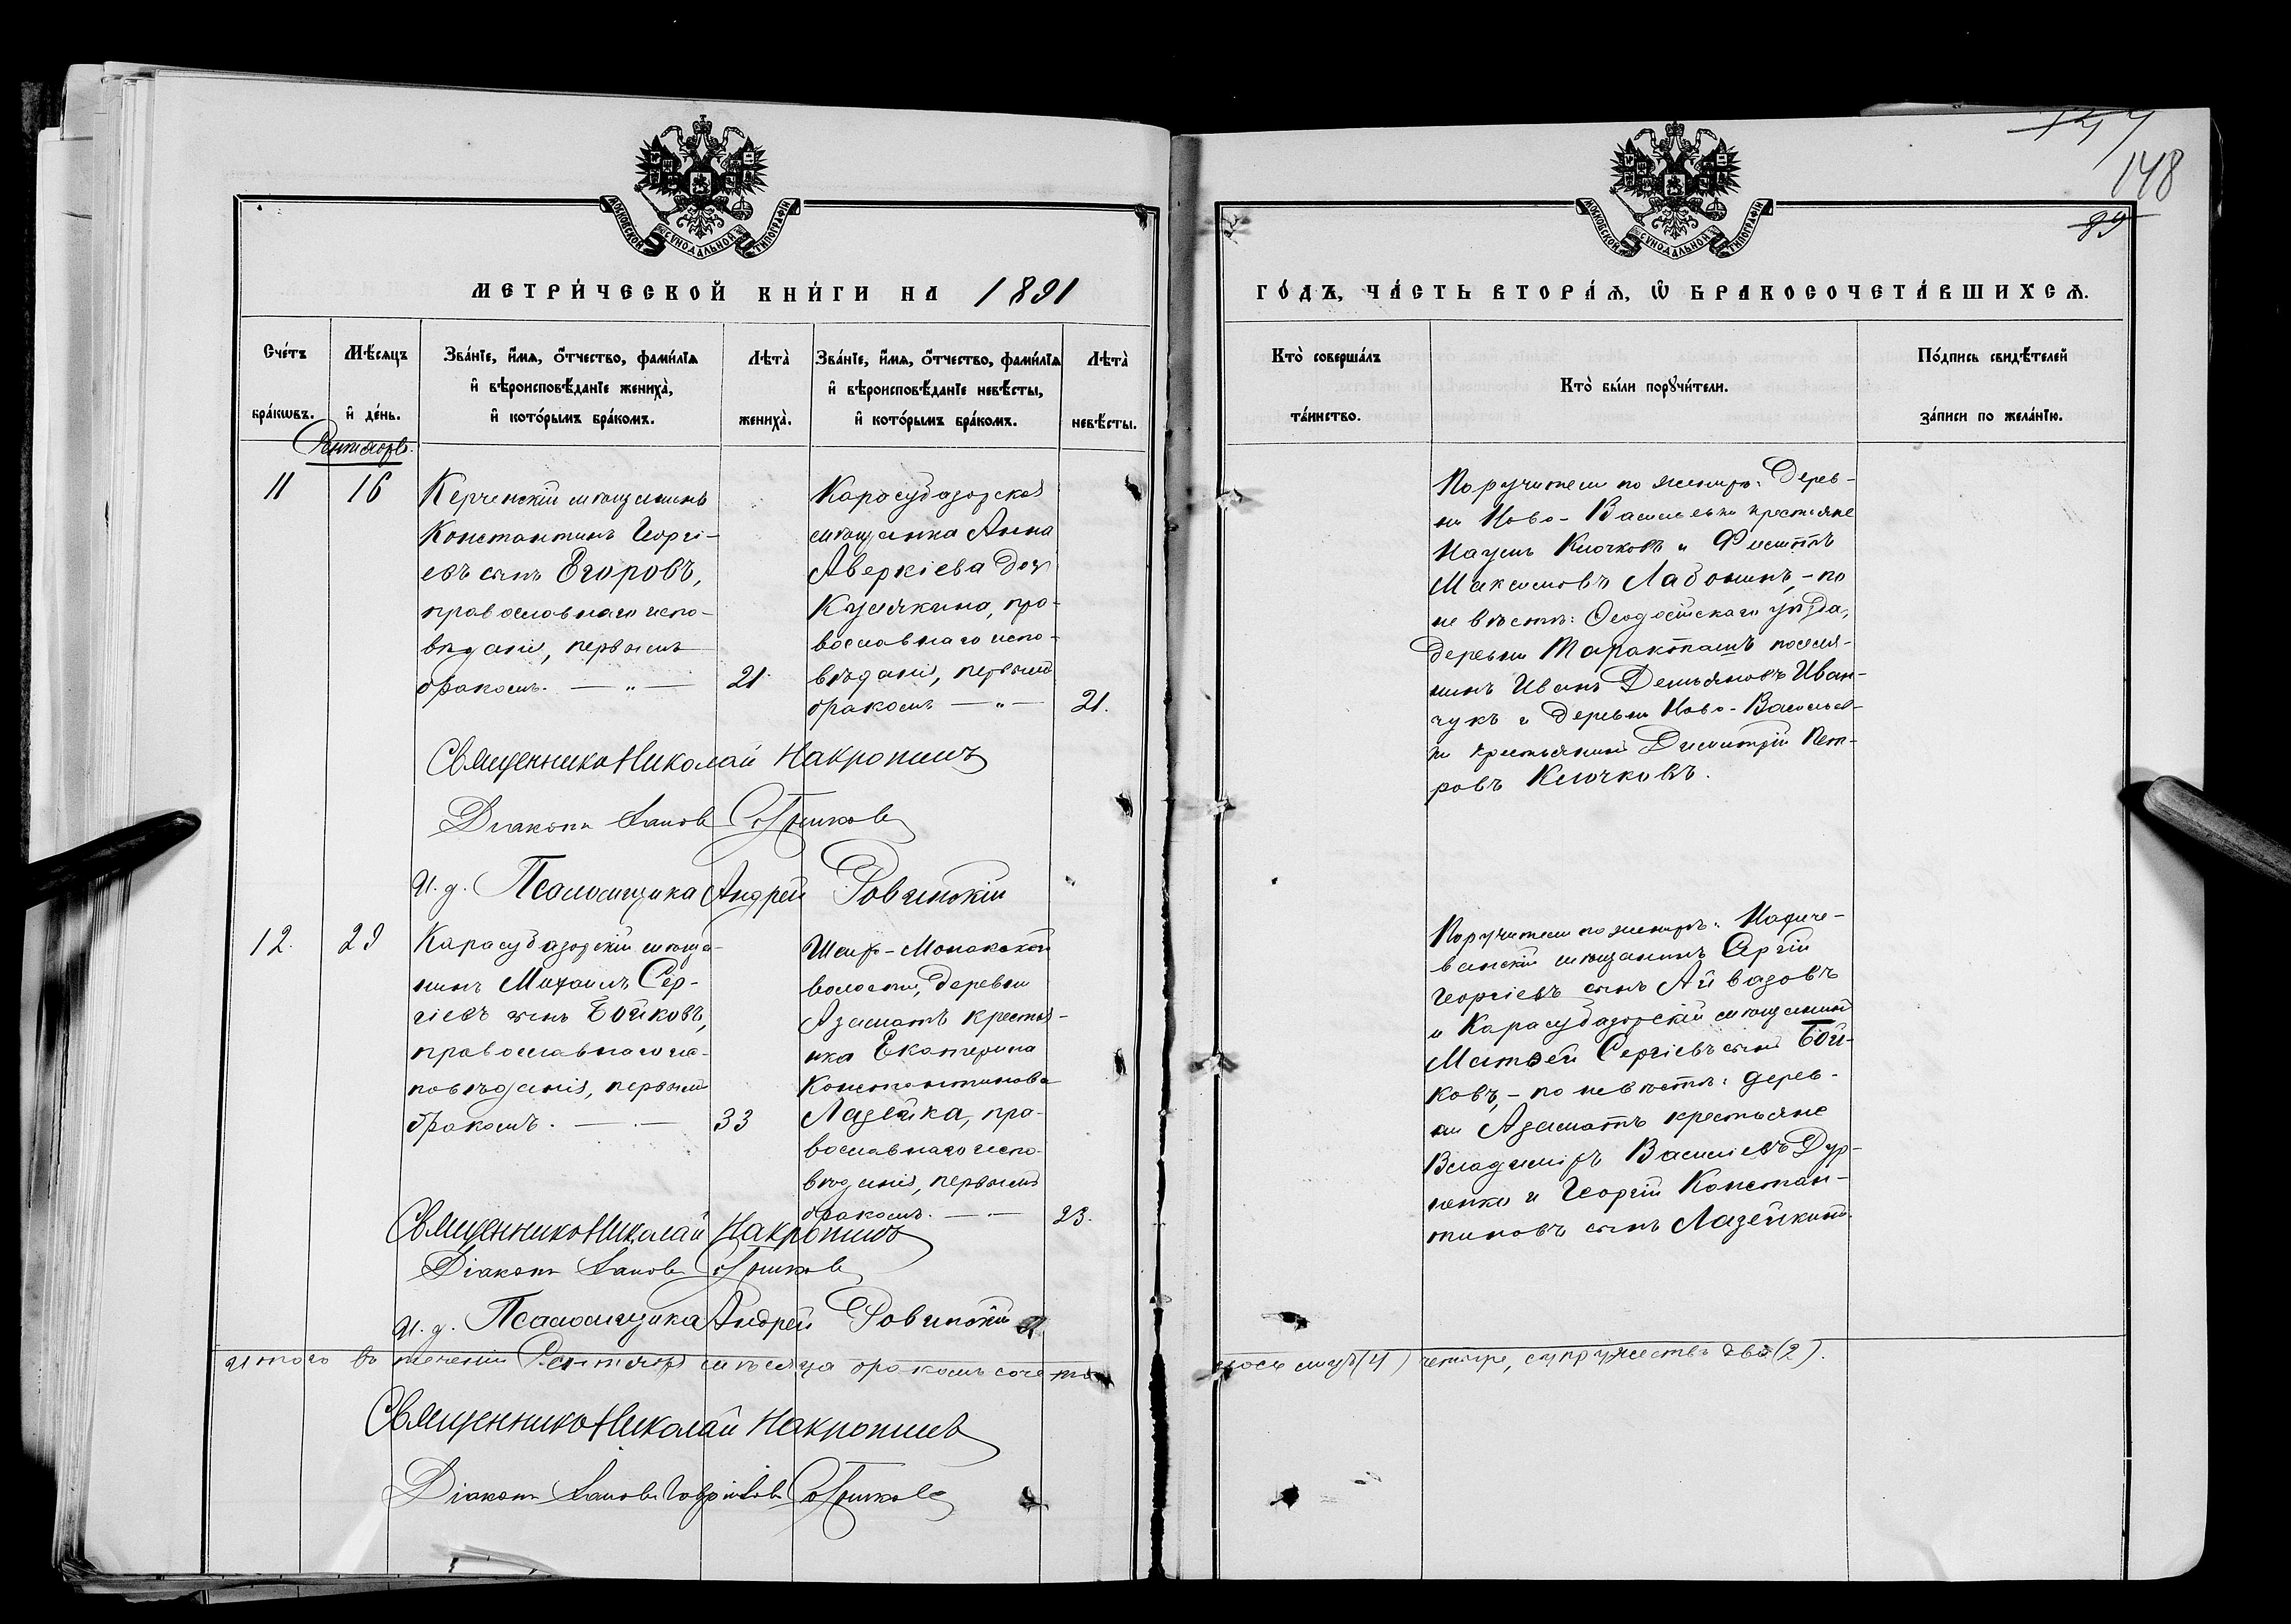 147
148
89
МОСКОВСКОЙ СѴНОДАЛЬНОЙ ТИПОГРАФІИ
МОСКОВСКОЙ СѴНОДАЛЬНОЙ ТИПОГРАФІИ
МЕТРИ́ЧЕСКОЙ КНИ́ГИ НА 1891
ГО́ДЪ, ЧА́СТЬ ВТОРА́Ѧ, Ѿ БРАКОСОЧЕТА́ВШИХСѦ.
Сче́тъ
бра́кѡвъ.
Мѣ́сяцъ
и҆ де́нь.
Зва́нїе, и҆́мѧ, ѻ҆́тчество, фами́лїѧ
и҆ вѣроисповѣ́данїе жениха̀,
и҆ кото́рымъ бра́комъ.
Лѣта̀
жениха̀.
Зва́нїе, и҆́мѧ, ѻ҆́тчество, фами́лїѧ
и҆ вѣроисповѣ́данїе невѣ́сты,
и҆ кото́рымъ бра́комъ.
Лѣта̀
невѣ́сты.
Кто̀ соверша́лъ
та́инство.
Кто̀ бы́ли порꙋчи́тели.
По́дпись свидѣ́телей
за́писи по жела́нїю.
Сентябрь.
11
16
Керченскій мѣщанинъ
Константинъ Георгі-
евъ сынъ Егоровъ,
православнаго испо-
вѣданія, первымъ
бракомъ. — „ —
21
Карасубазарская
мѣщанка Анна
Аверкіева дочь
Кузякина, пра-
вославнаго испо-
вѣданія, первымъ
бракомъ — „ —
21.
Поручители по женихѣ: Дерев-
ни Ново-Васильевки крестьяне
Наумъ Клочковъ и Филиппъ
Максимовъ Лабонинъ, - по
невѣстѣ: Ѳеодосійскаго уѣзда,
деревни Таракташъ поселя-
нинъ Иванъ Демьяновъ Иван-
чукъ и деревни Ново-Васильев-
ки крестьянинъ Димитрій Пет-
ровъ Клочковъ.
Священникъ Николай Накропинъ
Діаконъ
И. д. Псаломщика Андрей Ровинскій
12.
29
Карасубазарскій мѣща-
нинъ Михаилъ Сер-
гіевъ сынъ Бойковъ,
православнаго ис-
повѣданія, первымъ
бракомъ. — . —
33
волости, деревни
Азаматъ крестья-
нка Екатерина
Константинова
Лазейка, пра-
вославнаго испо-
вѣданія, первымъ
бракомъ. — . —
23.
Поручители по женихѣ: Нахиче-
ванскій мѣщанинъ Сергій
Георгіевъ сынъ Айвазовъ
и Карасубазарскій мѣщанинъ
Матвей Сергіевъ сынъ Бой-
ковъ, - по невѣстѣ: дерев-
ни Азаматъ крестьяне
Владиміръ Василіевъ Дур-
ненко и Георгій Констан-
тиновъ сынъ Лазейкинъ.
Священникъ Николай Накропинъ
Діаконъ
И. д. Псаломщика Андрей Ровинскій
Итого въ теченіи Сентября мѣсяца бракомъ сочета-
лось лицъ (4) четыре, супружествъ два (2).
Священникъ Николай Накропинъ
Діаконъ